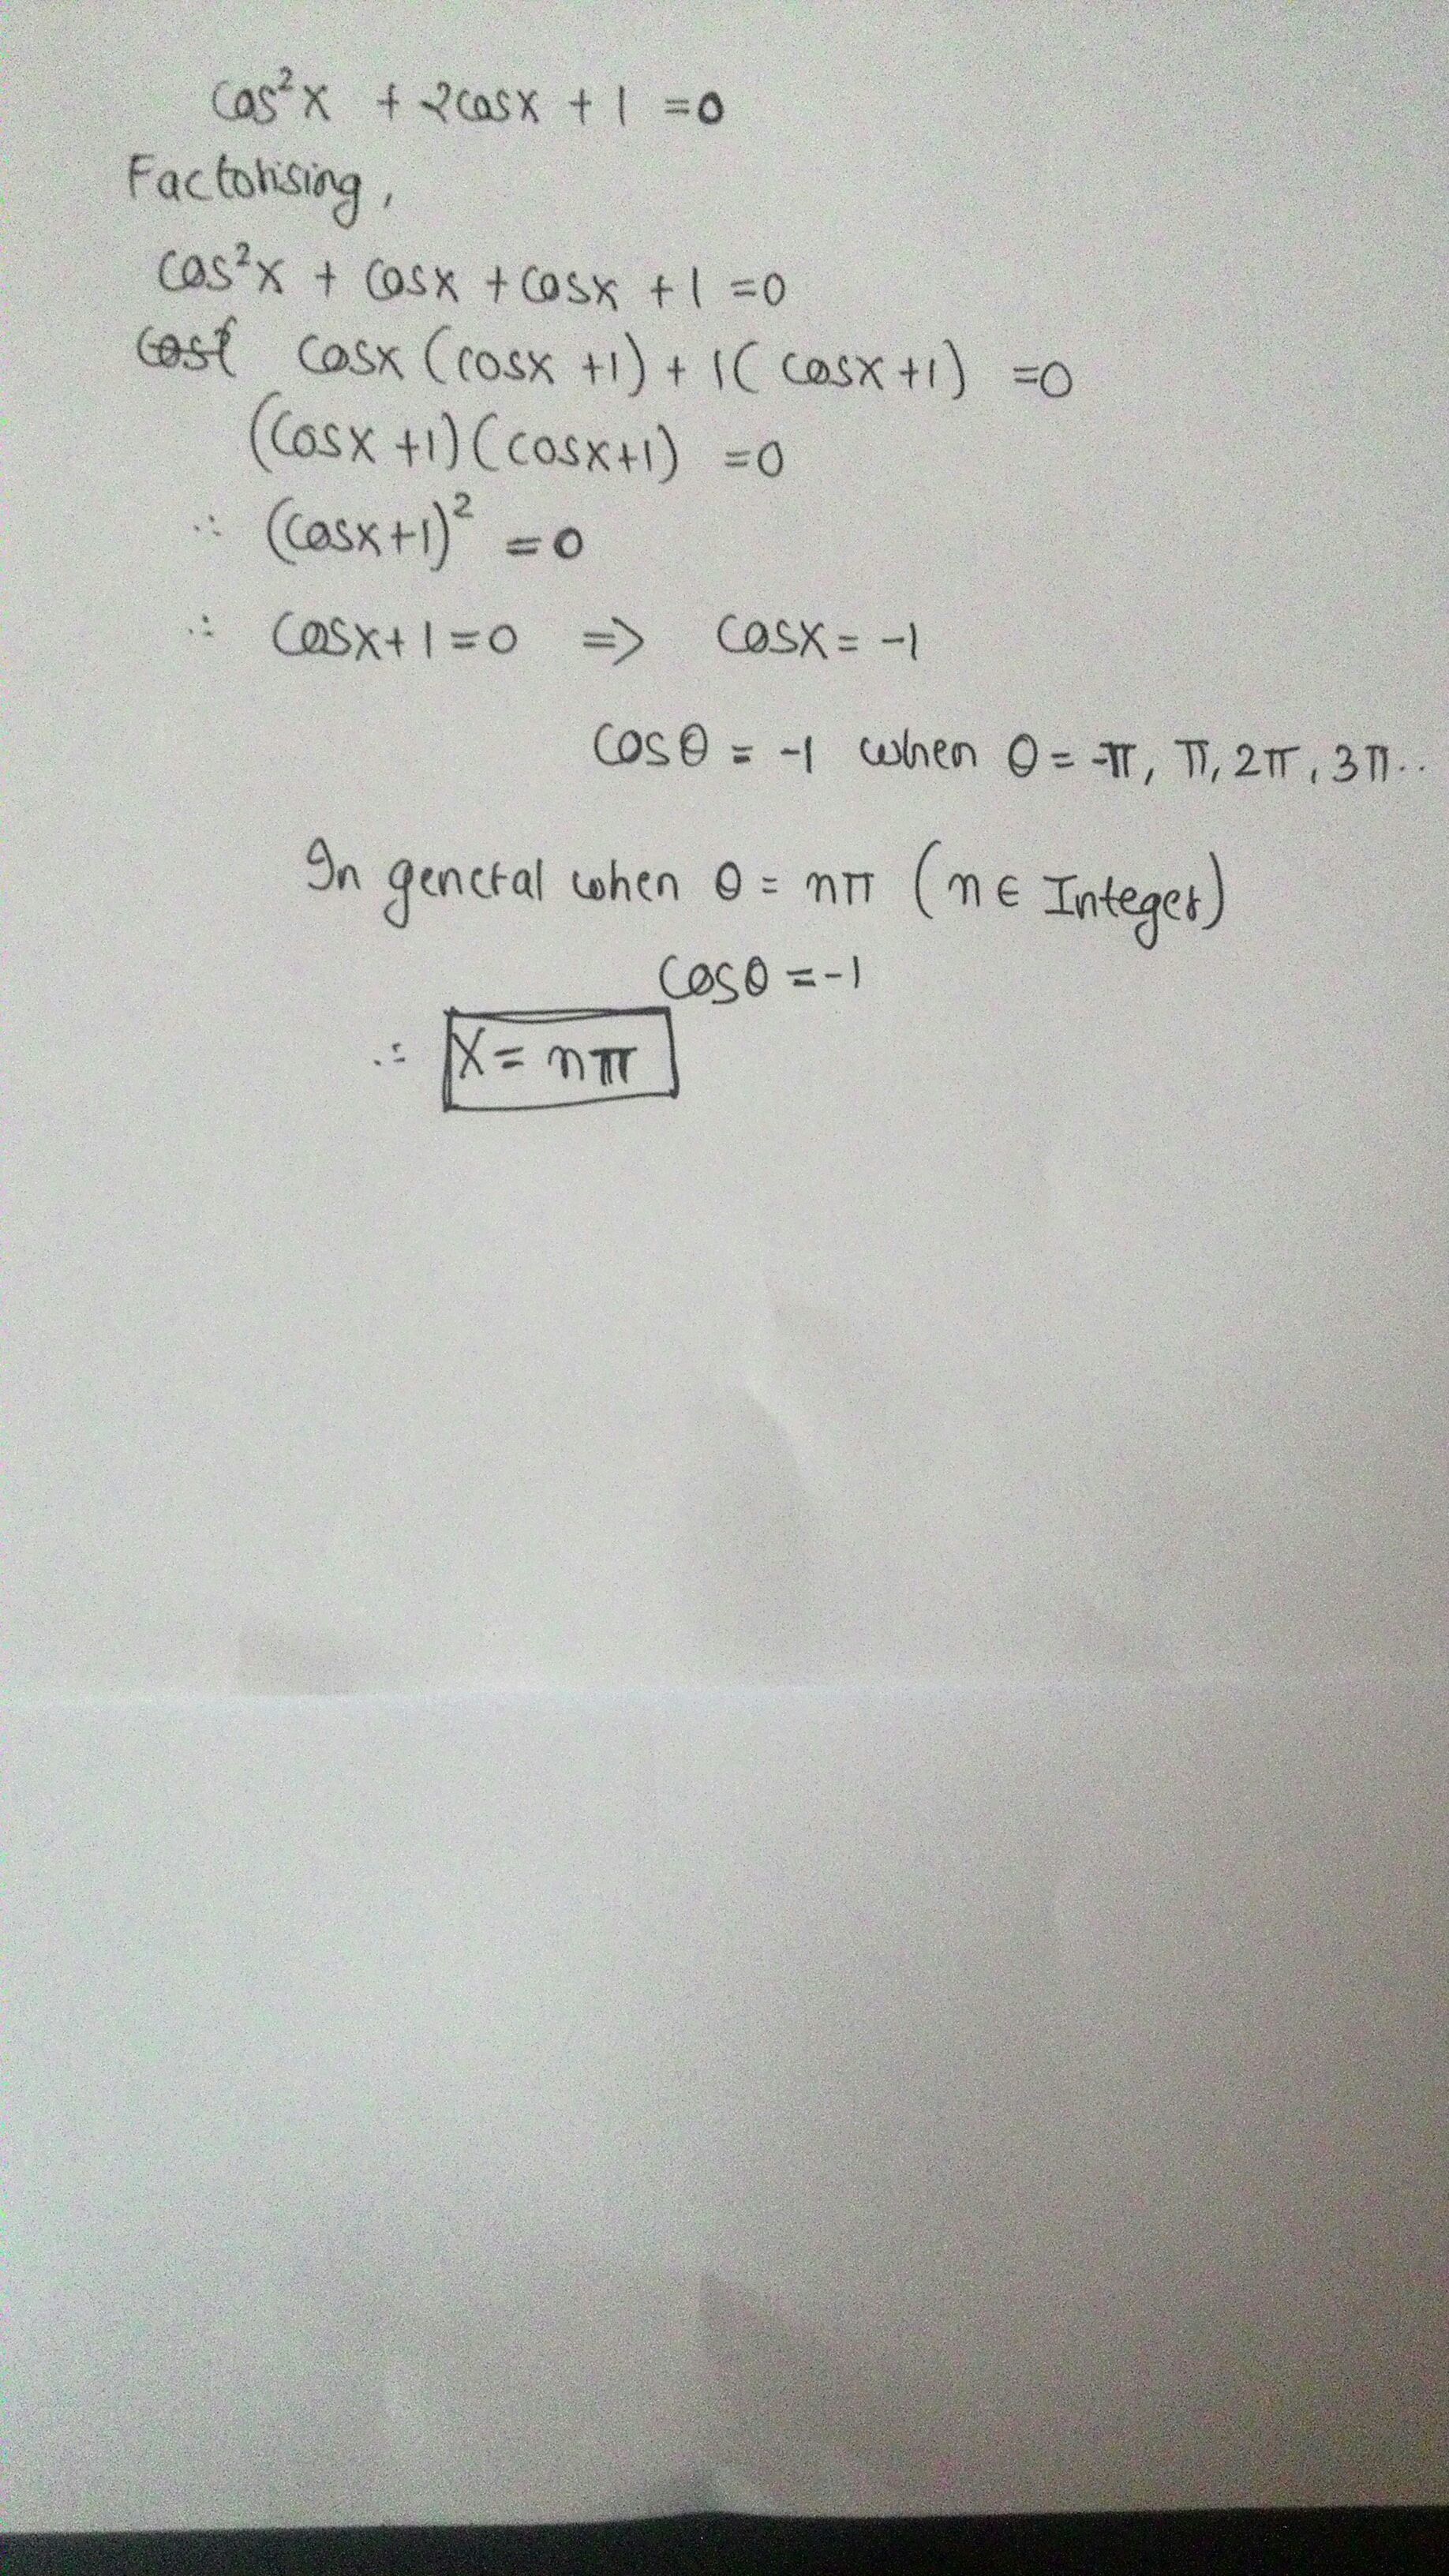 cos²x + 2cosx + 1 = 0
Factorising,
cos²x + cosx + cosx + 1 = 0
cosx (cosx +1) + 1( cosx+1) = 0
(cosx +1)(cosx+1) = 0
∴ (cosx+1)² = 0
∴ cosx+1=0 => cosx = -1
cosθ = -1 when θ = -π, π, 2π, 3π..
In general when θ = nπ (n ∈ Integer)
cosθ = -1
∴ x = nπ